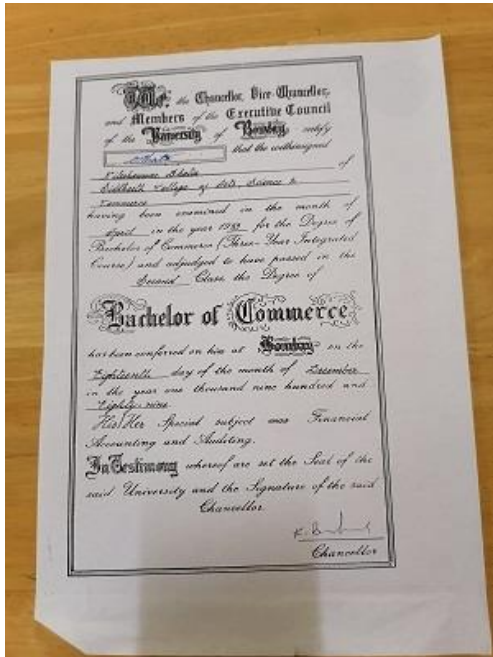 We, the Chancellor, Vice-Chancellor,
and Members of the Executive Council
of the University of Bombay, certify
that the withinsigned
Bhatia of
Siddharth College of Arts, Science &
Commerce
having been examined in the month of
April in the year 1989 for the Degree of
Bachelor of Commerce (Three-Year Integrated
Course) and adjudged to have passed in the
Second Class the Degree of
Bachelor of Commerce
has been conferred on him at Bombay on the
Eighteenth day of the month of December
in the year one thousand nine hundred and
Eighty nine
His/Her Special subject was Financial
Accounting and Auditing.
In Testimony whereof are set the Seal of the
said University and the Signature of the said
Chancellor.
Chancellor